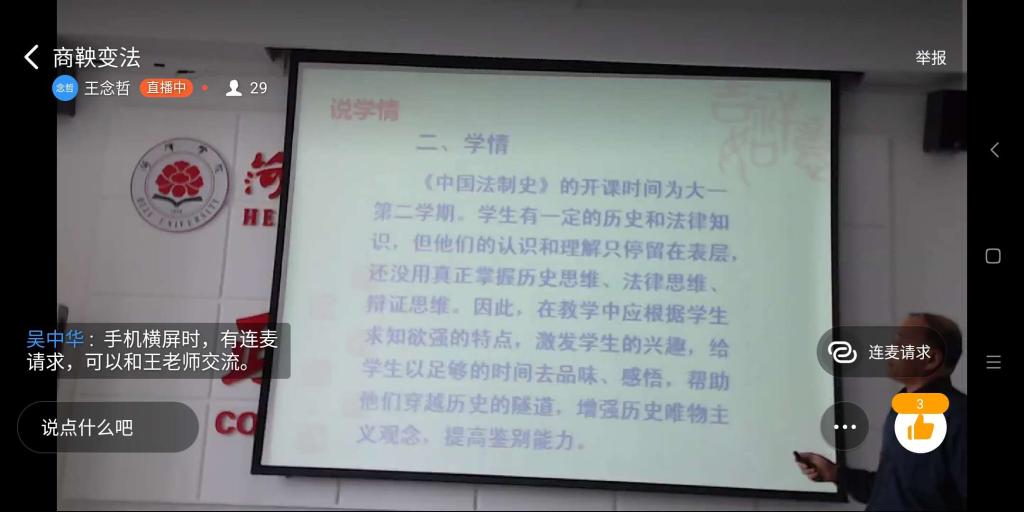 商鞅变法
举报
念哲 王念哲 直播中 29
说学情
二、学情
《中国法制史》的开课时间为大一
第二学期。学生有一定的历史和法律知
识，但他们的认识和理解只停留在表层，
还没用真正掌握历史思维、法律思维、
辩证思维。因此，在教学中应根据学生
求知欲强的特点，激发学生的兴趣，给
学生以足够的时间去品味、感悟，帮助
他们穿越历史的隧道，增强历史唯物主
义观念，提高鉴别能力。
HE
CO
吴中华：手机横屏时，有连麦
请求，可以和王老师交流。
连麦请求
说点什么吧
3